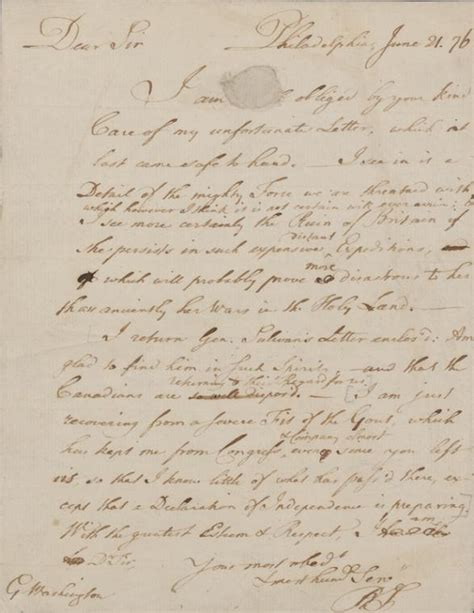 Dear Sir Philadelphia, June 21. 76
I am obliged by your kind
Care of my unfortunate Letter, which at
last came safe to hand. — I see in it a
Detail of the mighty Force we are threatned with
which however I think it is not certain will ever arrive;
I see more certainly the Ruin of Britain if
she persists in such expensive distant Expeditions,
which will probably prove more disastrous to her
than anciently her Wars in the Holy Land. —
I return Gen. Sulivan's Letter enclos'd: Am
glad to find him in such Spirits, and that the
Canadians are returning to their Regard for us.
I am just
recovering from a severe Fit of the Gout, which
has kept me from Congress & Company almost ever since you left
us, so that I know little of what has pass'd there, ex
cept that a Declaration of Independence is preparing.
With the greatest Esteem & Respect, I am
Dr Sir,
Your most obedt
& most hum Serv
BF
G Washington